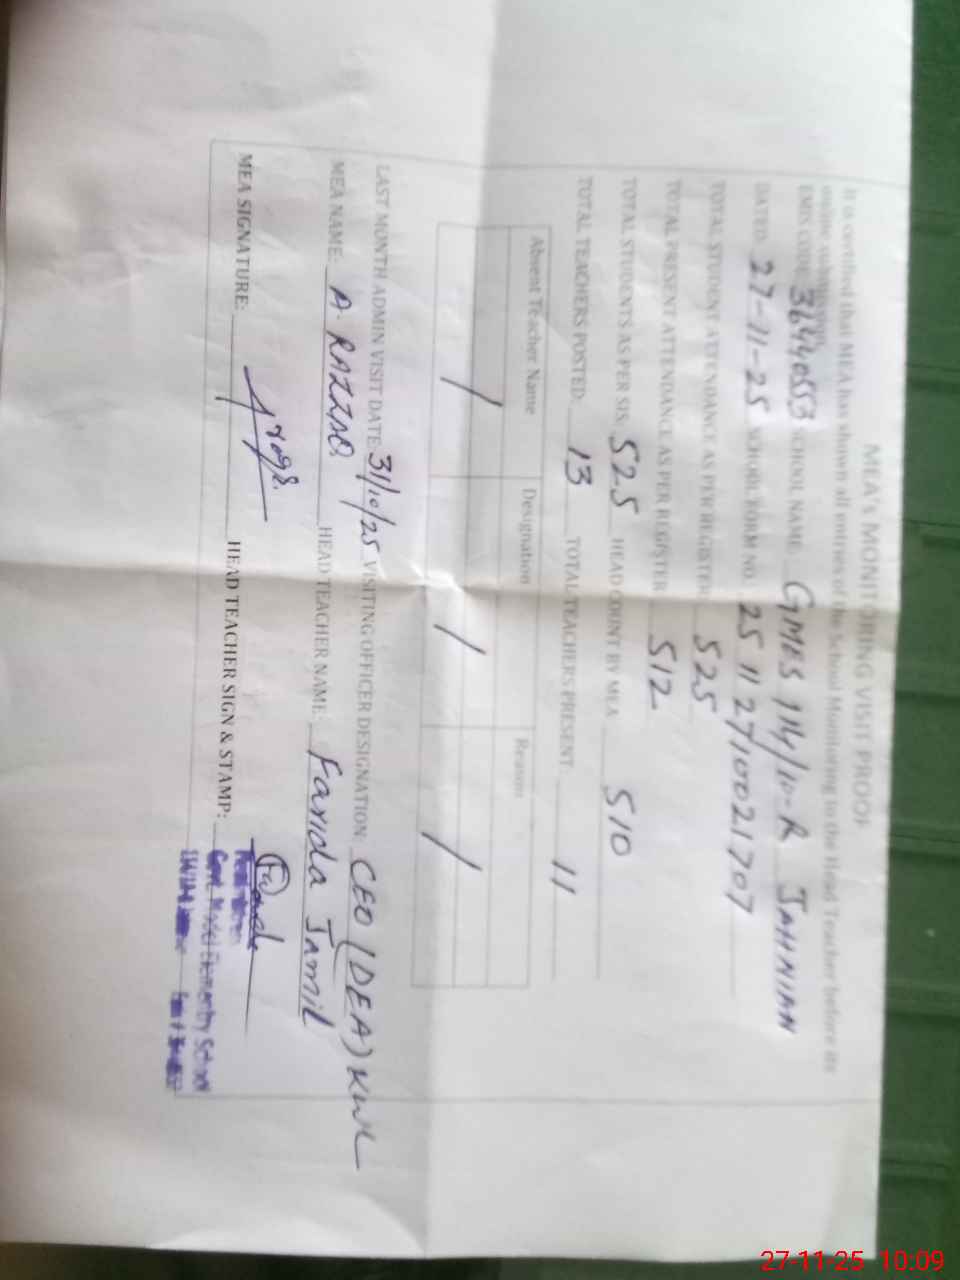 MEA's MONITORING VISIT PROOF
It is certified that MEA has shown all entries of the School Monitoring to the Head Teacher before its
online submission.
EMIS CODE: 36440553 SCHOOL NAME: GMES 114/10-R JAHNIAN
DATED: 27-11-25 SCHOOL FORM NO. 25112710021707
TOTAL STUDENT ATTENDANCE AS PER REGISTER 525
TOTAL PRESENT ATTENDANCE AS PER REGISTER 512
TOTAL STUDENTS AS PER SIS: 525 HEAD COUNT BY MEA 510
TOTAL TEACHERS POSTED: 13 TOTAL TEACHERS PRESENT: 11
Absent Teacher Name Designation Reason
/ / /
LAST MONTH ADMIN VISIT DATE: 31/10/25 VISITING OFFICER DESIGNATION: CEO (DEA) KWL
MEA NAME: A. RAZZAQ HEAD TEACHER NAME: Farida Jamil
MEA SIGNATURE: HEAD TEACHER SIGN & STAMP:
Govt. Model Elementry School
27-11-25 10:09